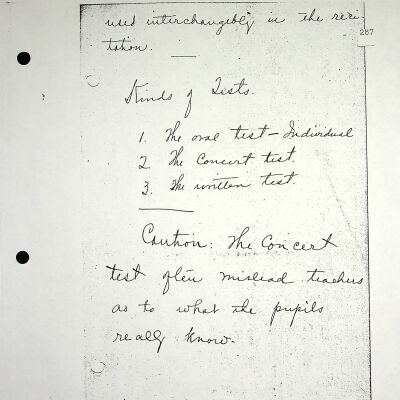 used interchangeably in the reci-
tation.
287
Kinds of Tests.
1. The oral test - Individual
2. The Concert test.
3. The written test.
Caution: The Concert
test often mislead teachers
as to what the pupils
really know.